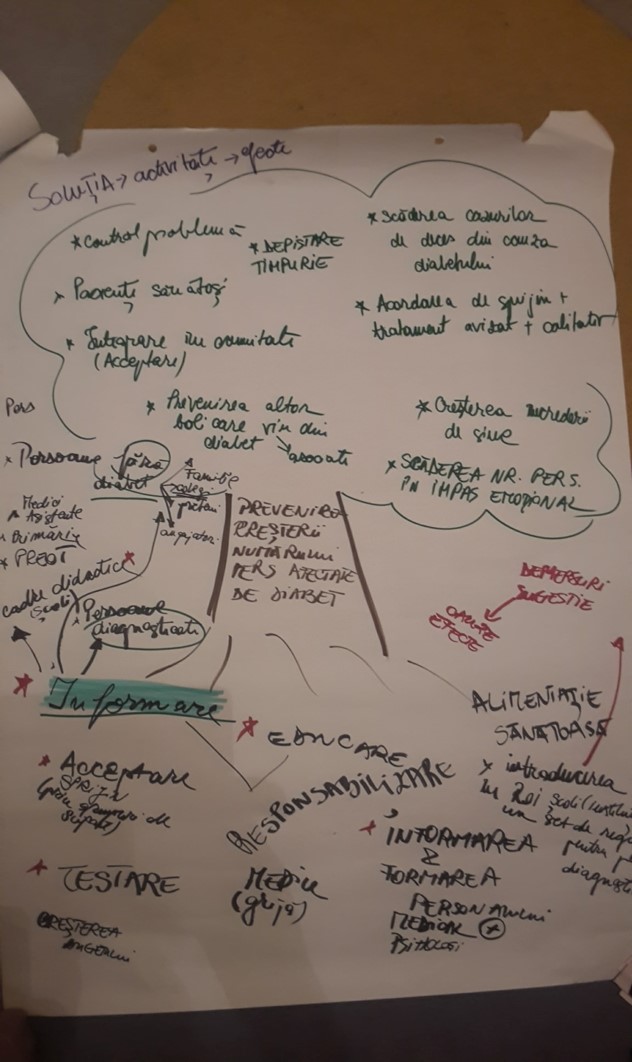 SOLUȚIA → activitate → efecte
* Control problemă
* DEPISTARE
TIMPURIE
* scăderea cazurilor
de deces din cauza
diabetului
* Pacienți sănătoși
* Acordarea de sprijin +
tratament avizat + calitativ
* Integrare în comunitate
(Acceptare)
* Prevenirea altor
boli care vin din
diabet
asociate
* Creșterea încrederii
de sine
* SCĂDEREA NR. PERS.
ÎN IMPAS EMOȚIONAL
Pers
* Persoane fără
diabet
Familie
colegi
prieteni
angajatori
Medici
Asistente
Primărie
* PREOT
cadre didactice
școli
* Persoane
diagnosticate
PREVENIREA
CREȘTERII
NUMĂRULUI
PERS AFECTATE
DE DIABET
DEMERSURI
SUGESTIE
EFECTE
* Informare
* EDUCARE
RESPONSABILIZARE
MEDIU
(grijă)
ALIMENTAȚIE
SĂNĂTOASĂ
* introducerea
în școli
un set de
pentru
* Acceptare
SPRIJIN
suport)
* TESTARE
CREȘTEREA
* INFORMAREA
&
FORMAREA
PERSONALULUI
MEDICAL +
PSIHOLOGI